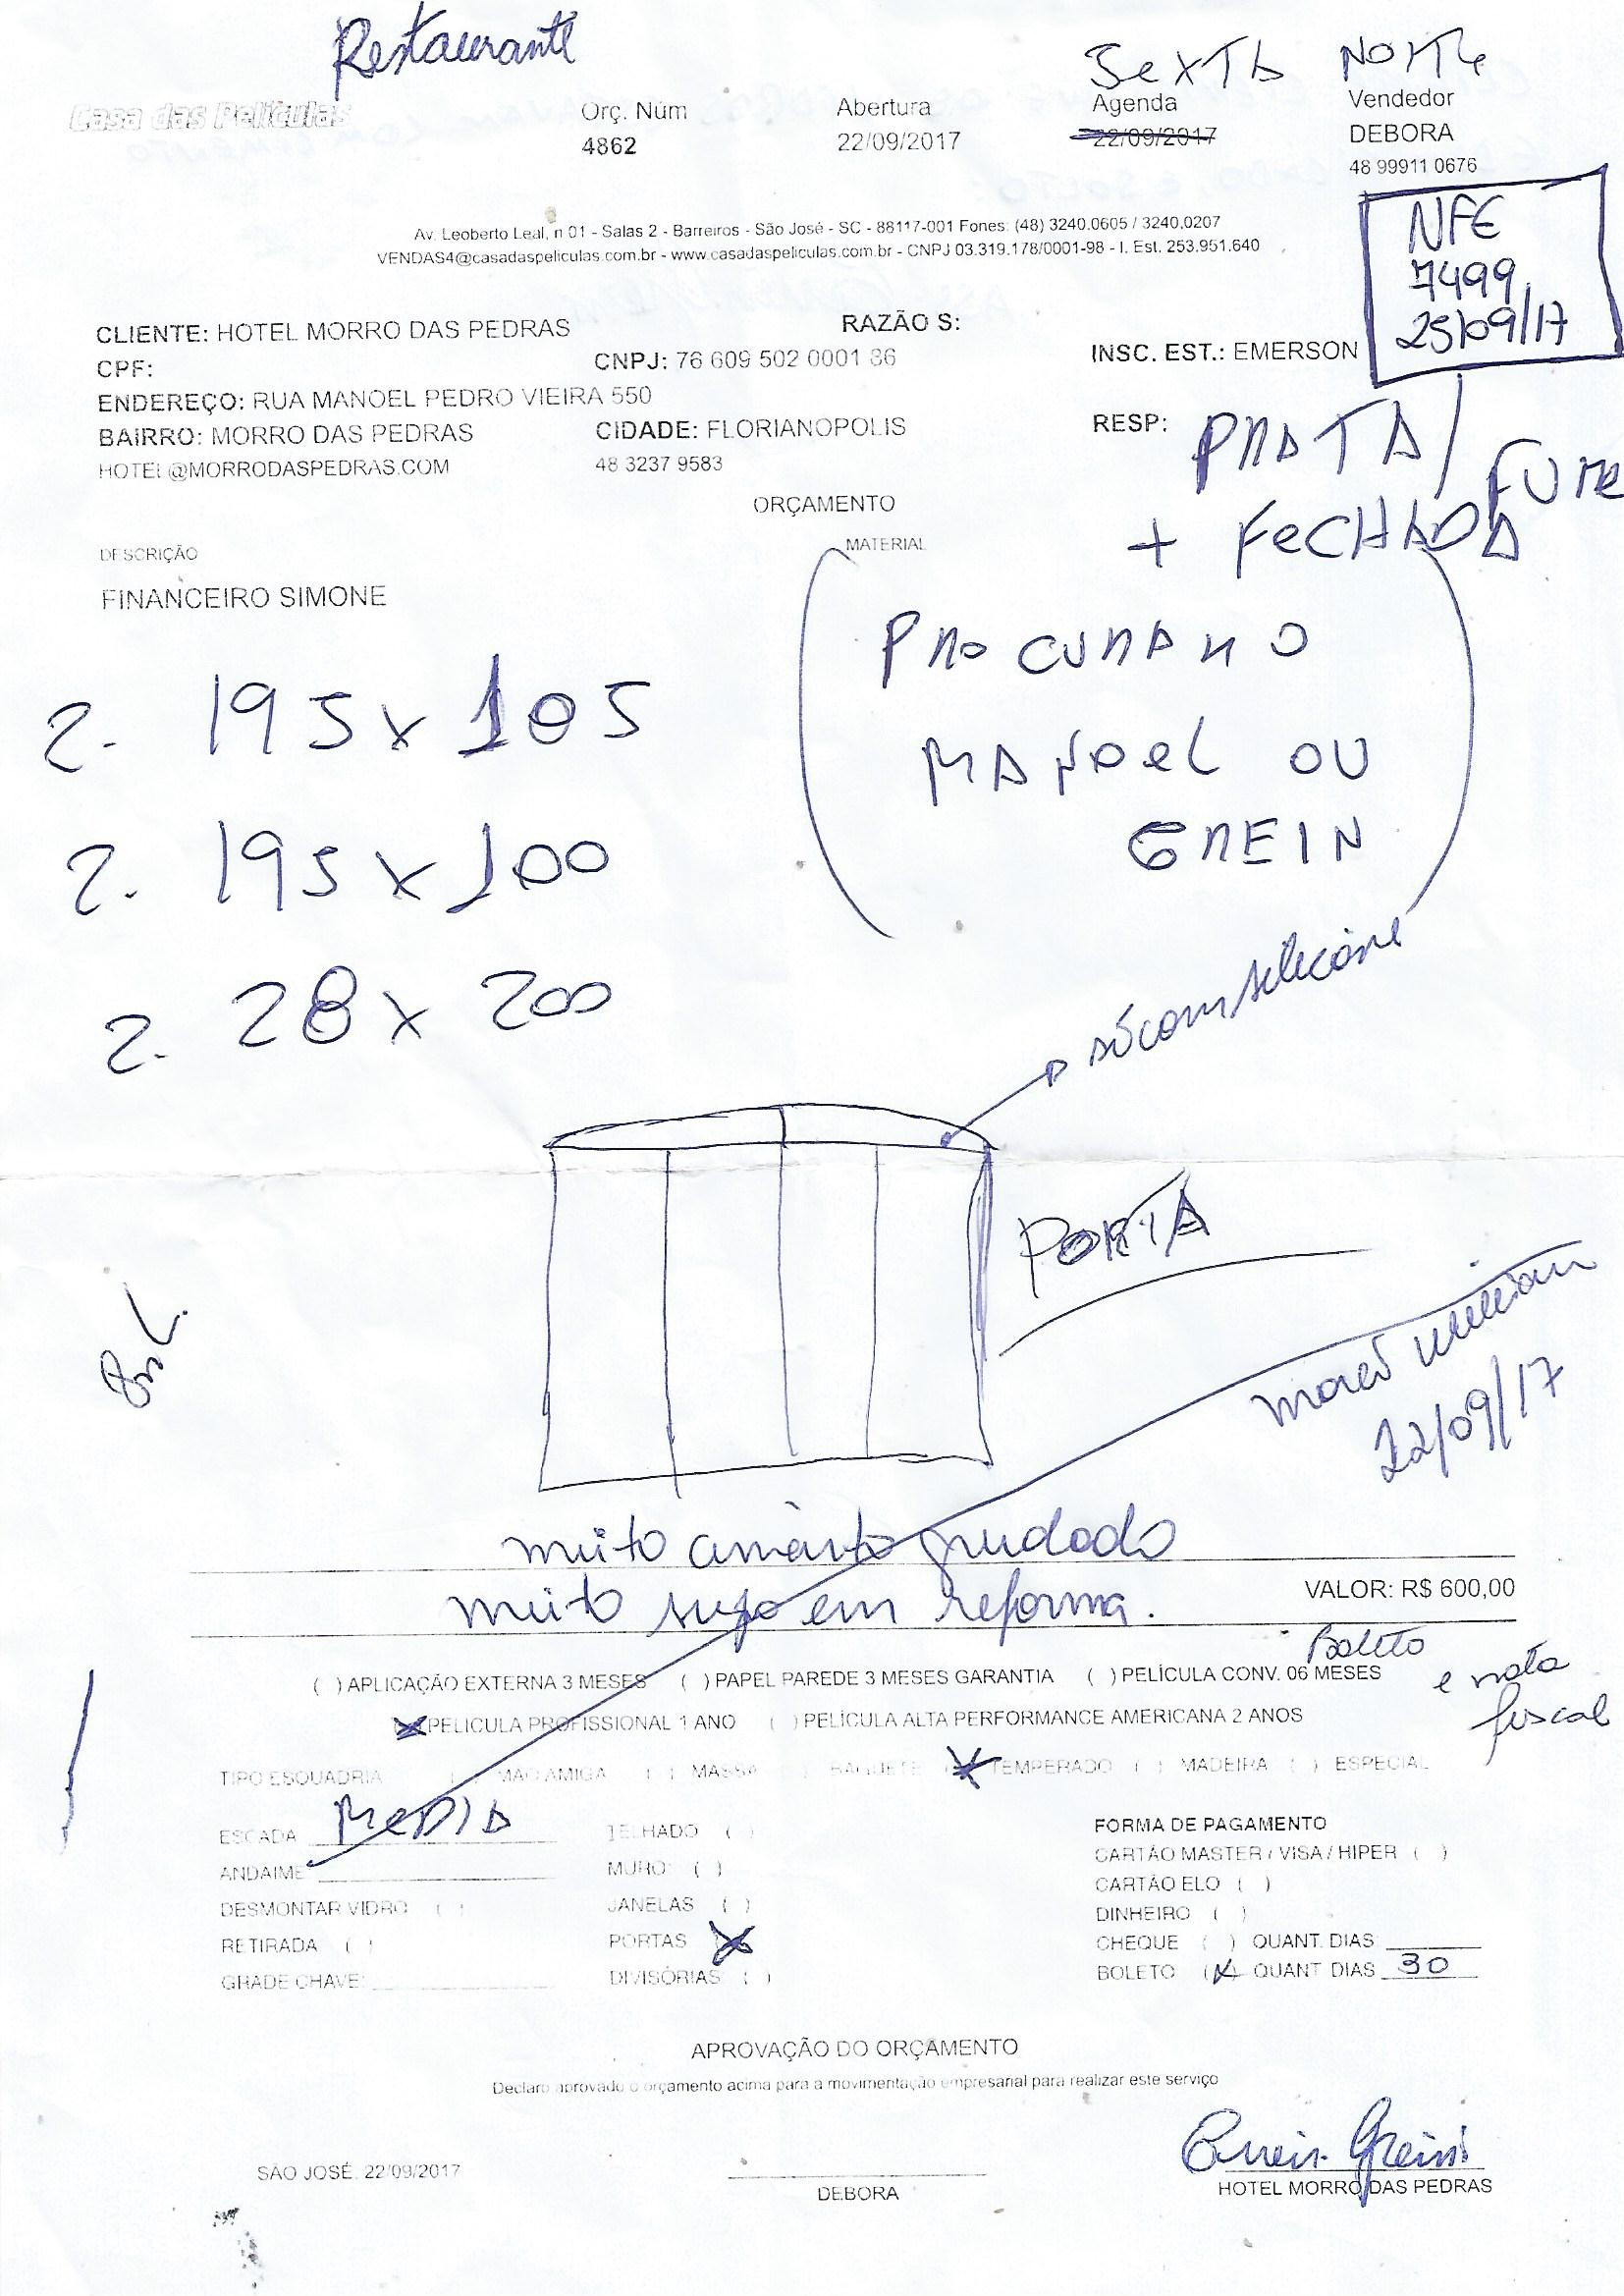 Restaurante
SEXTA NOITE
Casa das Películas
Orç. Núm
4862
Abertura
22/09/2017
Agenda
22/09/2017
Vendedor
DEBORA
48 99911 0676
Av. Leoberto Leal, n 01 - Salas 2 - Barreiros - São José - SC - 88117-001 Fones: (48) 3240.0605 / 3240.0207
VENDAS4@casadaspeliculas.com.br - www.casadaspeliculas.com.br - CNPJ 03.319.178/0001-98 - I. Est. 253.951.640
NFE
7499
25/09/17
CLIENTE: HOTEL MORRO DAS PEDRAS
RAZÃO S:
CPF:
CNPJ: 76 609 502 0001 86
INSC. EST.: EMERSON
ENDEREÇO: RUA MANOEL PEDRO VIEIRA 550
BAIRRO: MORRO DAS PEDRAS
CIDADE: FLORIANOPOLIS
RESP:
HOTEL@MORRODASPEDRAS.COM
48 3237 9583
PRATA / FUME
+ FECHADA
ORÇAMENTO
DESCRIÇÃO
MATERIAL
FINANCEIRO SIMONE
PROCURAR O
MANOEL OU
GREIN
2. 195 x 105
2. 195 x 100
2. 28 x 200
só com selecione
PORTA
22/09/17
muito grudado
muito sujo em reforma.
VALOR: R$ 600,00
Boleto
e nota
fiscal
( ) APLICAÇÃO EXTERNA 3 MESES ( ) PAPEL PAREDE 3 MESES GARANTIA ( ) PELÍCULA CONV. 06 MESES
(X) PELICULA PROFISSIONAL 1 ANO ( ) PELÍCULA ALTA PERFORMANCE AMERICANA 2 ANOS
TIPO ESQUADRIA ( ) MAO AMIGA ( ) MASSA ( ) BAGUETE (X) TEMPERADO ( ) MADEIRA ( ) ESPECIAL
ESCADA MEDIA
TELHADO ( )
FORMA DE PAGAMENTO
ANDAIME
MURO: ( )
CARTÃO MASTER / VISA / HIPER ( )
DESMONTAR VIDRO ( )
JANELAS ( )
CARTÃO ELO ( )
RETIRADA ( )
PORTAS (X)
DINHEIRO ( )
GRADE CHAVE:
DIVISÓRIAS ( )
CHEQUE ( ) QUANT. DIAS:
BOLETO (X) QUANT DIAS 30
APROVAÇÃO DO ORÇAMENTO
Declaro aprovado o orçamento acima para a movimentação empresarial para realizar este serviço
SÃO JOSÉ, 22/09/2017
DEBORA
HOTEL MORRO DAS PEDRAS